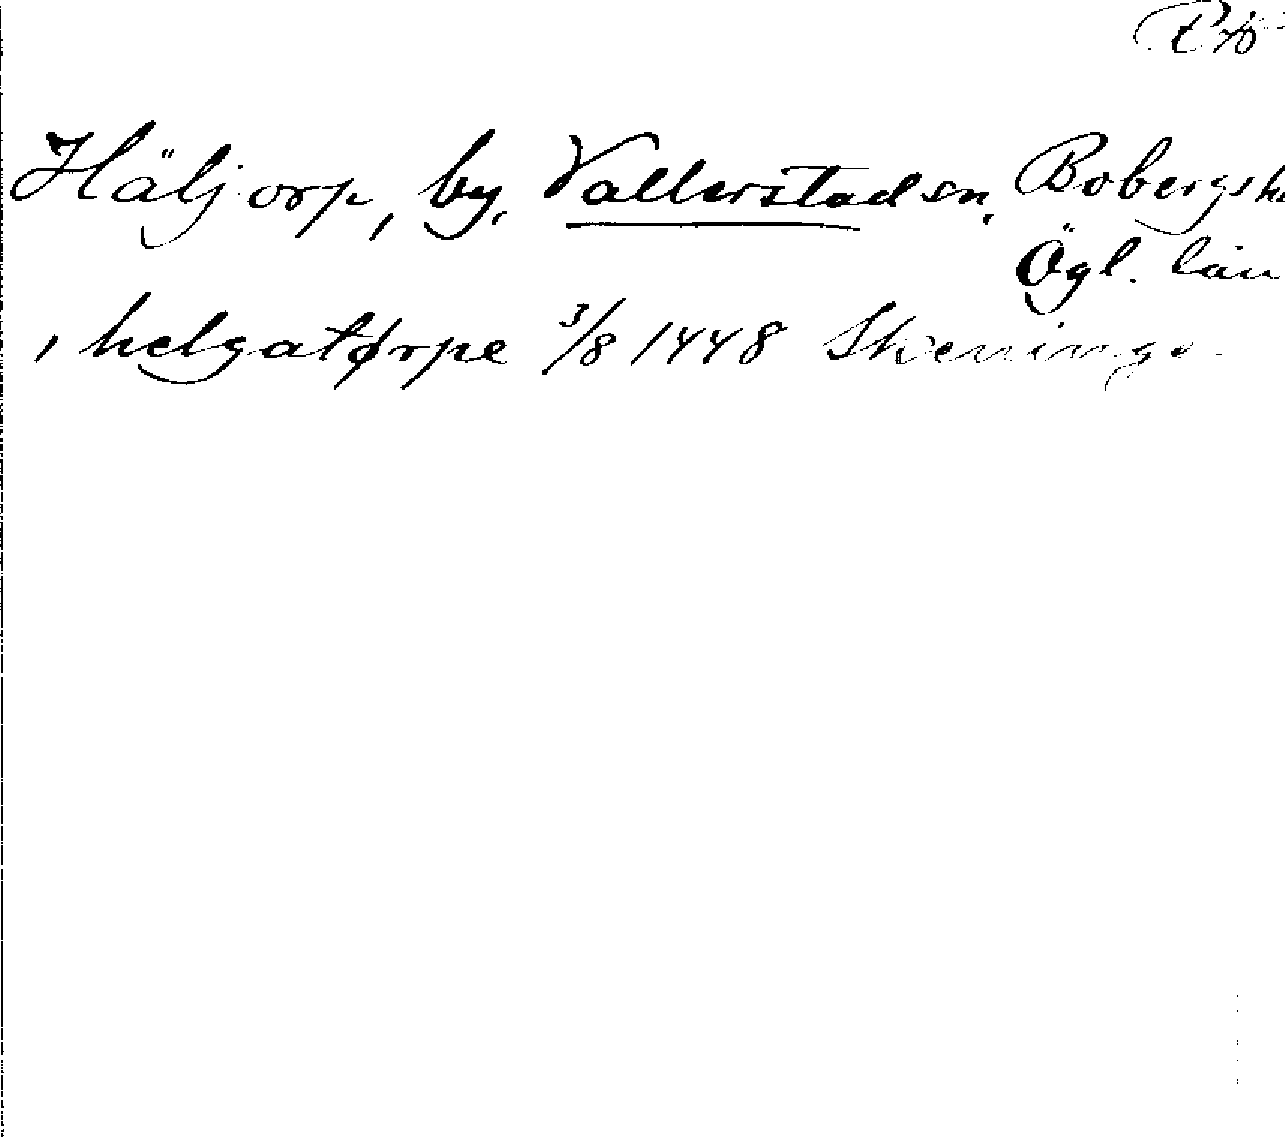 Häljorp, by, Vallerstad sn, Bobergs h
Ögl. län
, helgatørpe 3/8 1448 Skeninge